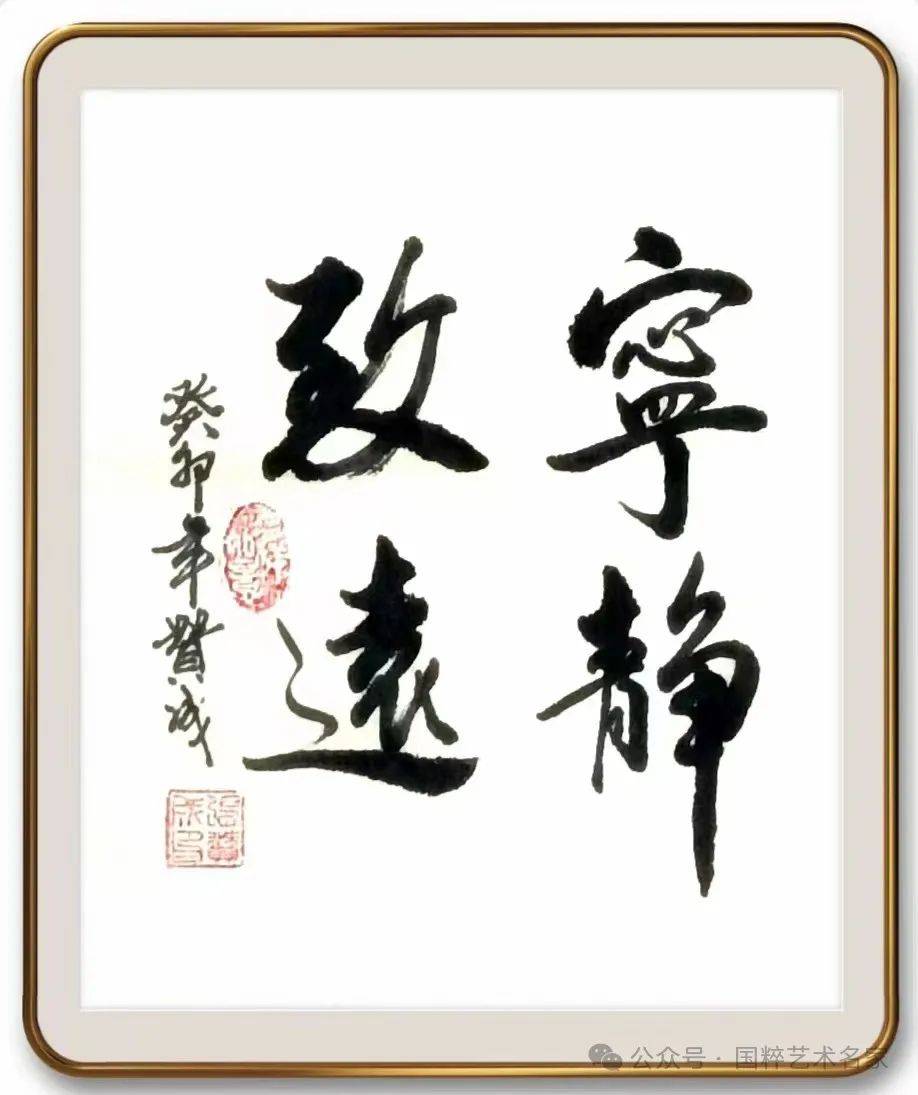 寧靜
致遠
癸卯年贊成
公众号 · 国粹艺术名家